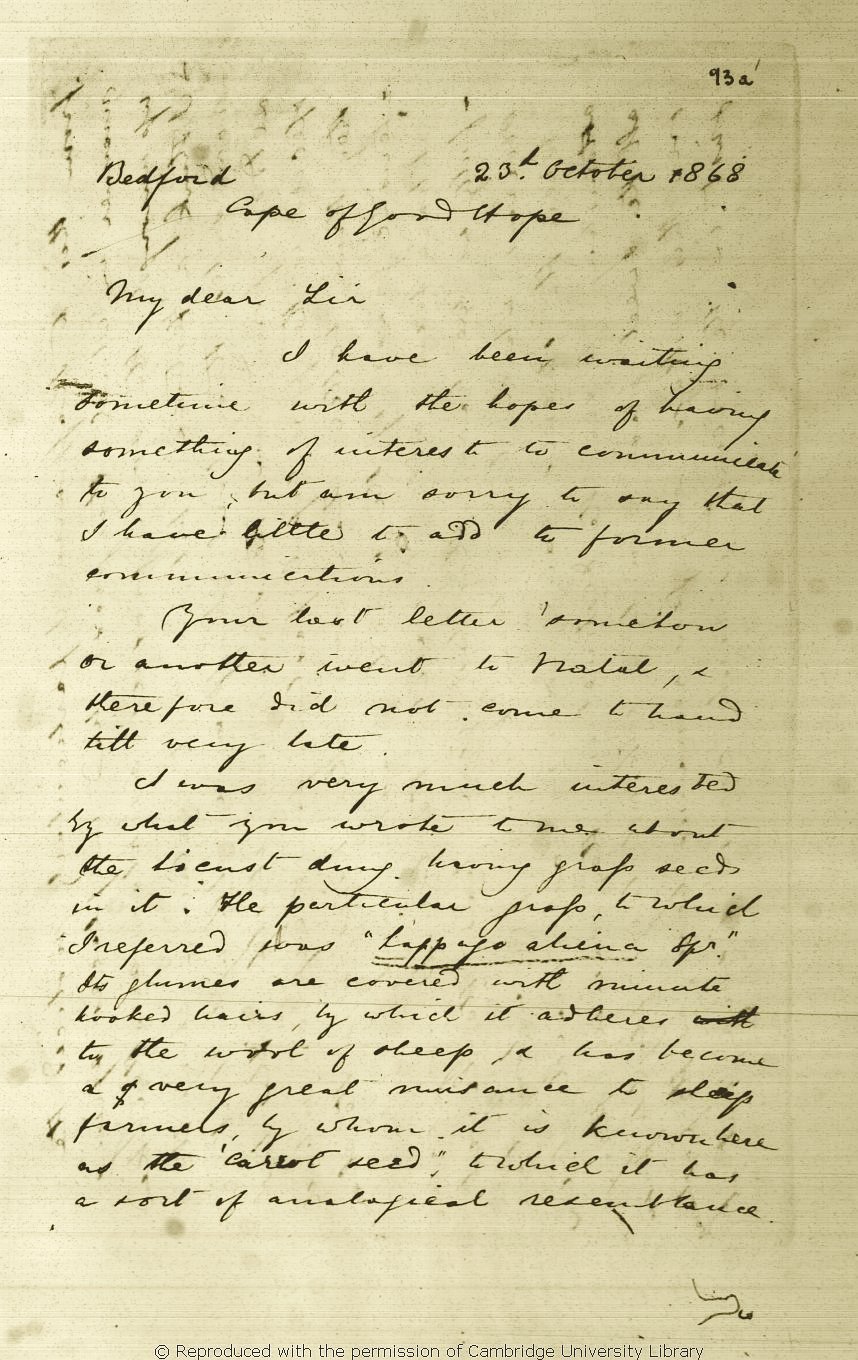 93a
Bedford 23d. October 1868
Cape of Good Hope
My dear Sir
I have been waiting
sometime with the hopes of having
something of interest to communicate
to you, but am sorry to say that
I have little to add to former
communications.
Your last letter somehow
or another went to Natal, &
therefore did not come to hand
till very late.
I was very much interested
by what you wrote to me about
the locust dung having grass seeds
in it. The particular grass, to which
I referred was "Lappago aliena Spr."
Its glumes are covered with minute
hooked hairs, by which it adheres with
to the wool of sheep, & has become
a very great nuisance to sheep
farmers, by whom it is known here
as the "carrot seed", to which it has
a sort of analogical resemblance.
© Reproduced with the permission of Cambridge University Library